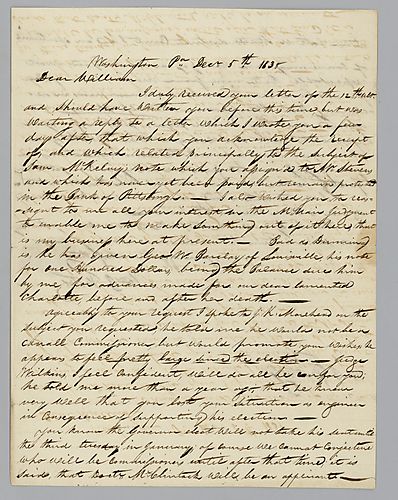 Washington Pa Decr 5th 1835
Dear William
I duly received your letter of the 12th ulto
and should have written you before this time but was
waiting a reply to a letter which I wrote you a few
days after that which you acknowledge the receipt
of, and which related principally to the subject of
Saml McKelvy's note which you assigned to Mr Stevens
and which has never yet been paid but remains protested
in the Bank of Pittsburgh. — I also wished you to
assign to me all your interest in the McNair Judgment
to enable me to make something out of it here that
is my business here at present. — Bad as Dunning
is, he has given Geo. W. of Louisville his note
for one Hundred Dollars being the balance due him
by me, for advances made for our dear lamented
Charlotte before and after her death. —
Agreeably to your request I spoke to J.K. Moorhead on the
subject you requested, he told me he would not be a
Canall Commissioner but would promote your wishes, he
appears to feel pretty large since the election — Judge
Wilkins, I feel confident will do all he can for you,
He told me more than a year ago that he knew
very well that you lost your situation as engineer
in consequence of supporting his election —
You know the Governor elect will not take his seat until
the third tuesday in January, of course we cannot conjecture
who will be Commissioners until after that time, it is
said, that Doctr McClintock will be an applicant —